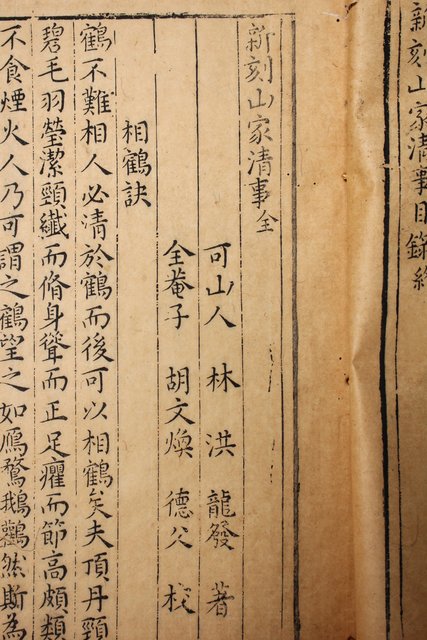 新刻山家清事目錄終
新刻山家清事全
可山人 林 洪 龍發 著
全菴子 胡文煥 德父 校
相鶴訣
鶴不難相人必清於鶴而後可以相鶴矣夫頂丹頸
碧毛羽瑩潔頸纖而脩身聳而正足癯而節高頗類
不食煙火人乃可謂之鶴望之如鴈鶩鵝鸛然斯為